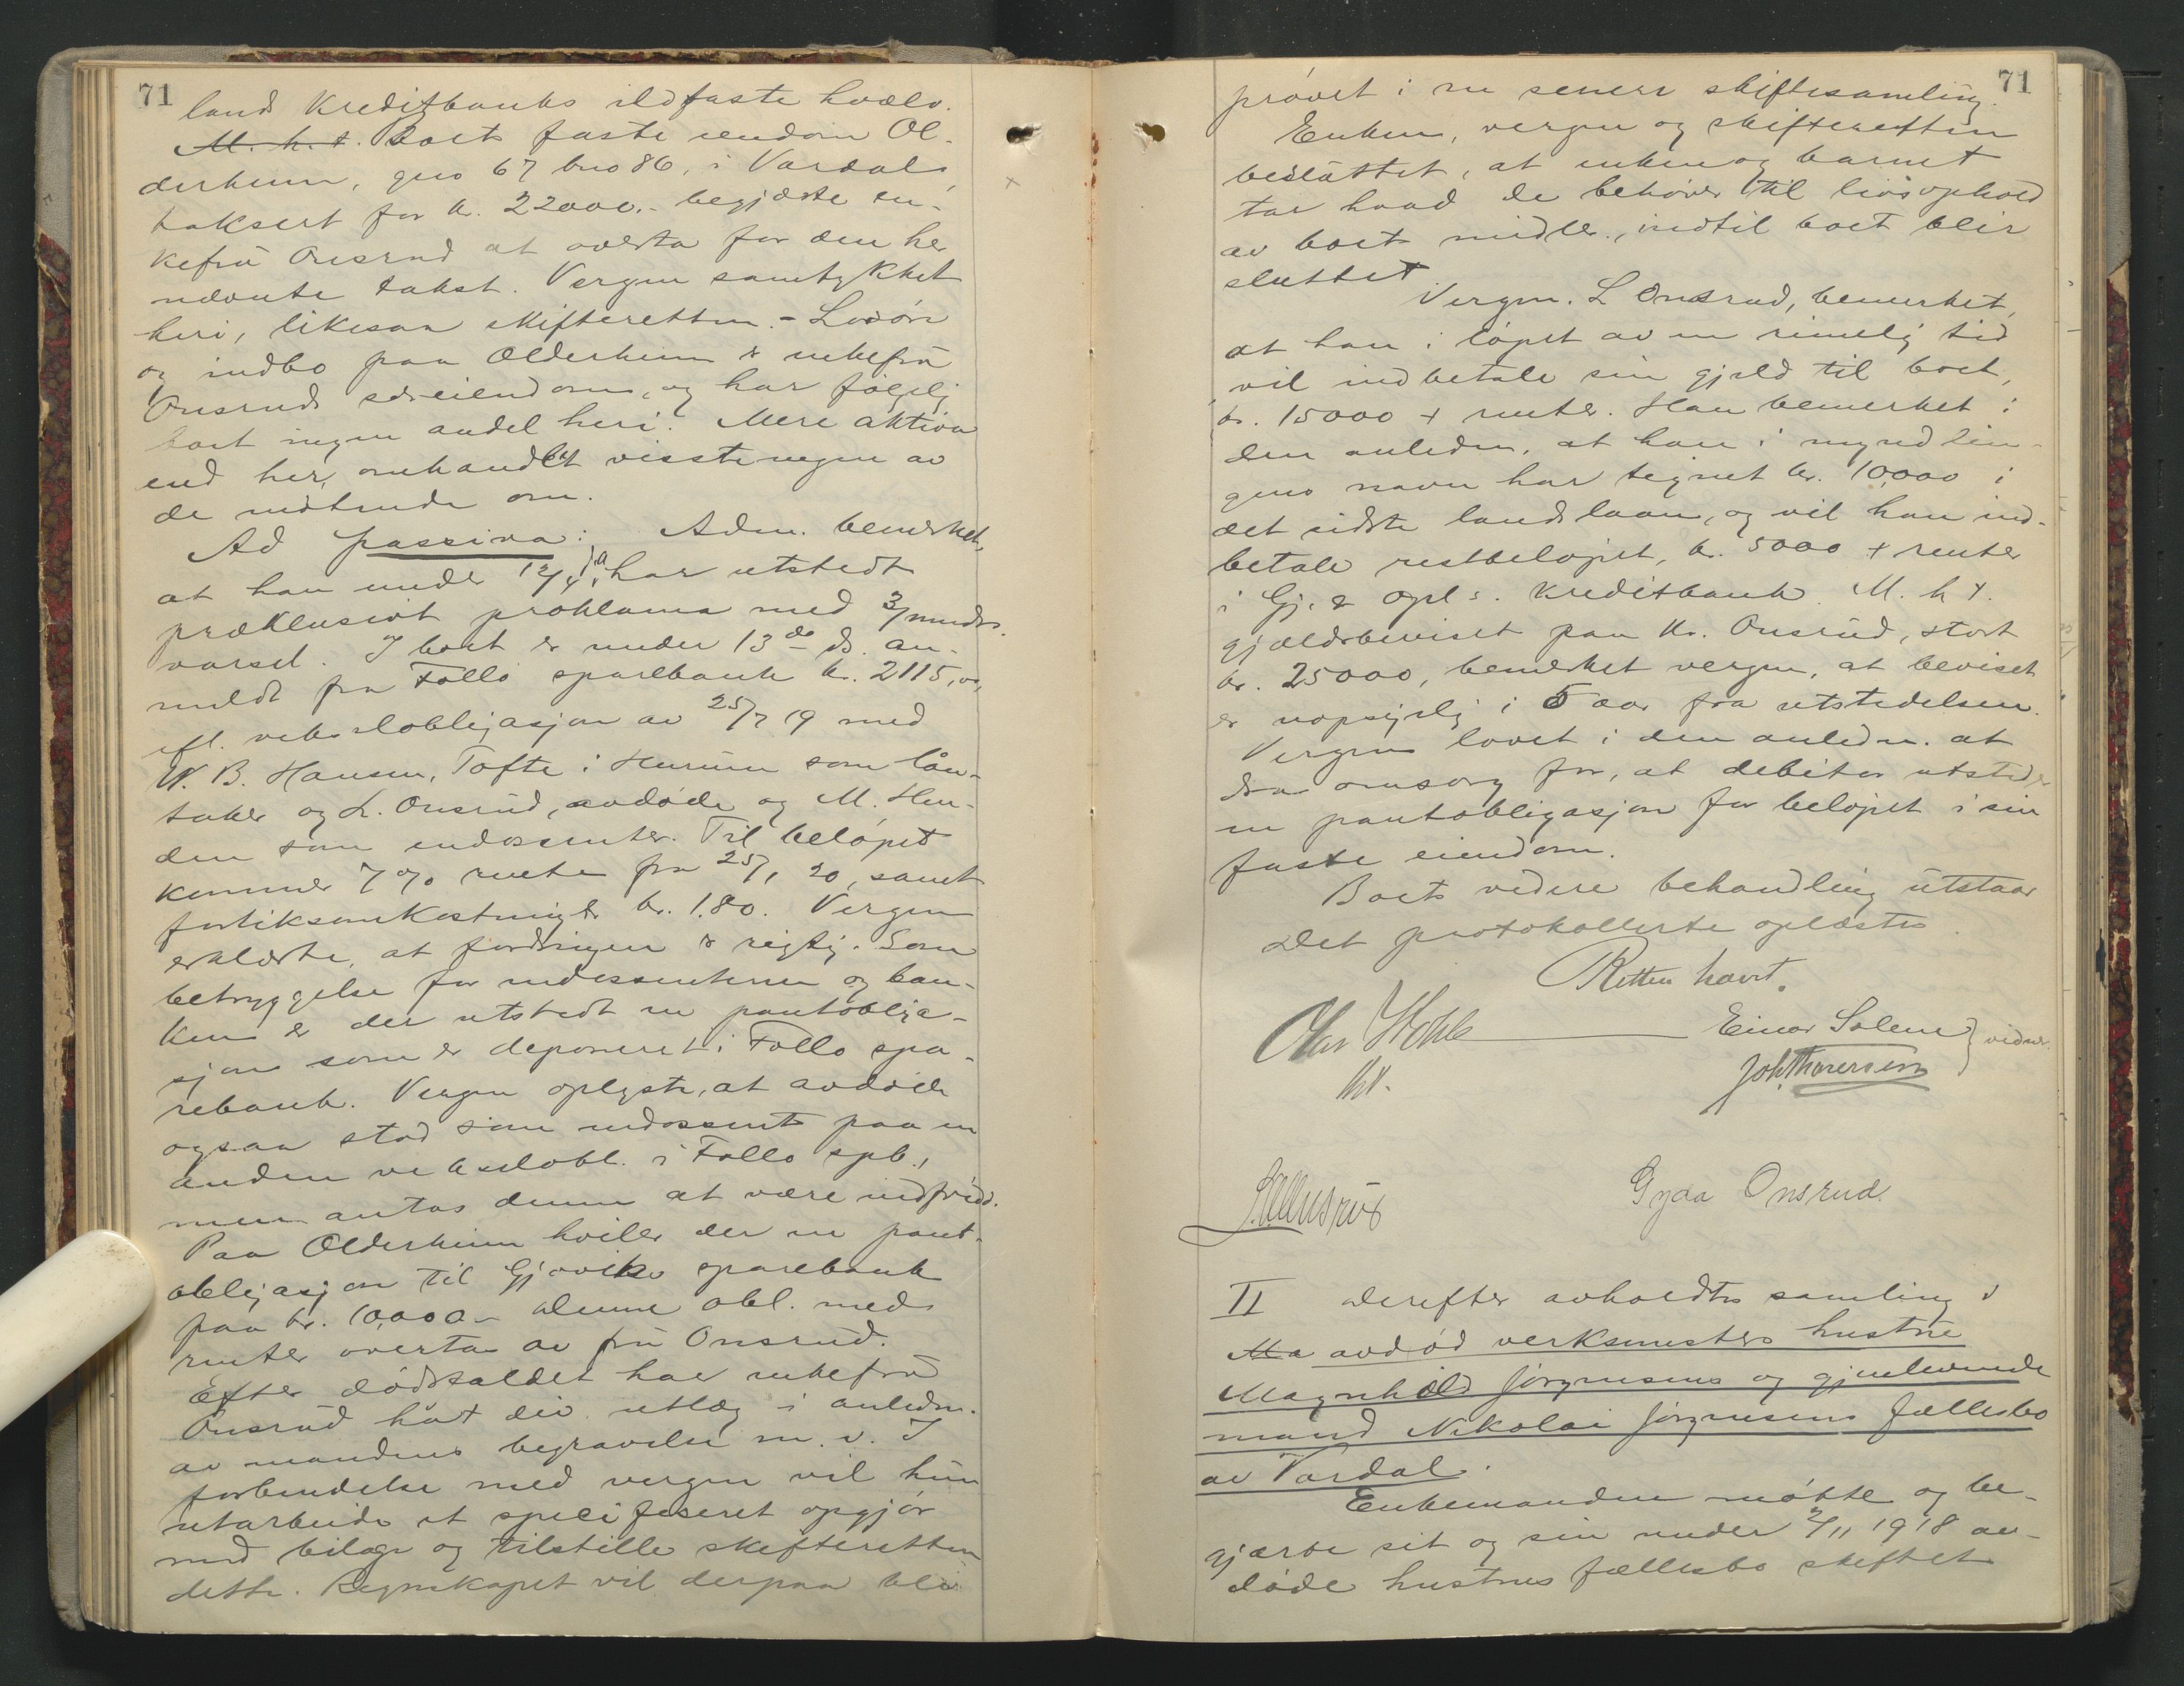 71
lands Kreditbanks ildfaste hvælv.
M. h. t. Boets faste eiendom Ol-
derheim, gno 67 bno 86, i Vardal,
taksert for kr. 22000.- begjærte en-
kefru Onsrud at overta for den her
nævnte takst. Vergen samtykket
heri, likesaa skifteretten. - Løsøre
og indbo paa Olderheim er enkefru
Onsruds særeiendom, og har følgelig
boet ingen andel heri. Mere aktiva
end her omhandlet visste ingen av
de møtende om.
Ad passiva: Adm. bemerket,
at han under 12/4 d.a. har utstedt
præklusivt proklama med 3/mndrs.
varsel. I boet er under 13de ds. an-
meldt fra Follo sparebank kr. 2115,00,
efl. vekselobligasjon av 25/7 19 med
N. B. Hansen, Tofte i Hurum som lån-
taker og L. Onsrud, avdøde og M. Hen-
den som endossenter. Til beløpet
kommer 7% rente fra 25/1 20, samt
forliksomkostninger kr. 1.80. Vergen
erklærte, at fordringen er rigtig. Som
betryggelse for endossentene og ban-
ken er der utstedt en pantobliga-
sjon som er deponeret i Follo spa-
rebank. Vergen oplyste, at avdøde
ogsaa stod som endossent paa en
anden vekselobl. i Follo spb.,
men antas denne at være indfridd.
Paa Olderheim hviler der en pant-
obligasjon til Gjøviks sparebank
paa kr. 10,000- Denne obl. med
renter overtas av fru Onsrud.
Efter dødsfaldet har enkefru
Onsrud hat div. utlæg i anledn.
av mandens begravelse m. v. I
forbindelse med vergen vil hun
utarbeide et specifiseret opgjør
med bilage og tilstille skifteretten
dette. Regnskapet vil derpaa bli
71
prøvet i en senere skiftesamling.
Enken, vergen og skifteretten
besluttet, at enken og barnet
tar hvad de behøver til livsophold
av boets midler, indtil boet blir
sluttet
Vergen. L Onsrud, bemerket,
at han i løpet av en rimelig tid
vil indbetale sin gjæld til boet,
kr. 15000 + renter. Han bemerket i
den anledn. at han i myndlin-
gens navn har tegnet kr. 10,000 i
det sidste landslaan, og vil han ind-
betale restbeløpet, kr. 5000 + renter
i Gj. & Opl s. Kreditbank. M. h t.
gjældsbeviset paa Kr. Onsrud, stort
kr. 25000, bemerket vergen, at beviset
er uopsigelig i 5 aar fra utstedelsen.
Vergen lovet i den anledn. at
dra omsorg for, at debitor utsteder
en pantobligasjon for beløpet i sin
faste eiendom.
Boets videre behandling utstaar
Det protokollerte oplæstes.
Retten hævet.
Einar Solem } vidner.
Joh. Thoresen
L. Onsrud
Gyda Onsrud.
II Derefter avholdtes samling i
Ma avdød verksmesters hustrue
Magnhild Jørgensens og gjenlevende
mand Nikolai Jørgensens fællesbo
av Vardal.
Enkemanden møtte og be-
gjærte sit og sin under 2/11 1918 av-
døde hustrus fællesbo skiftet